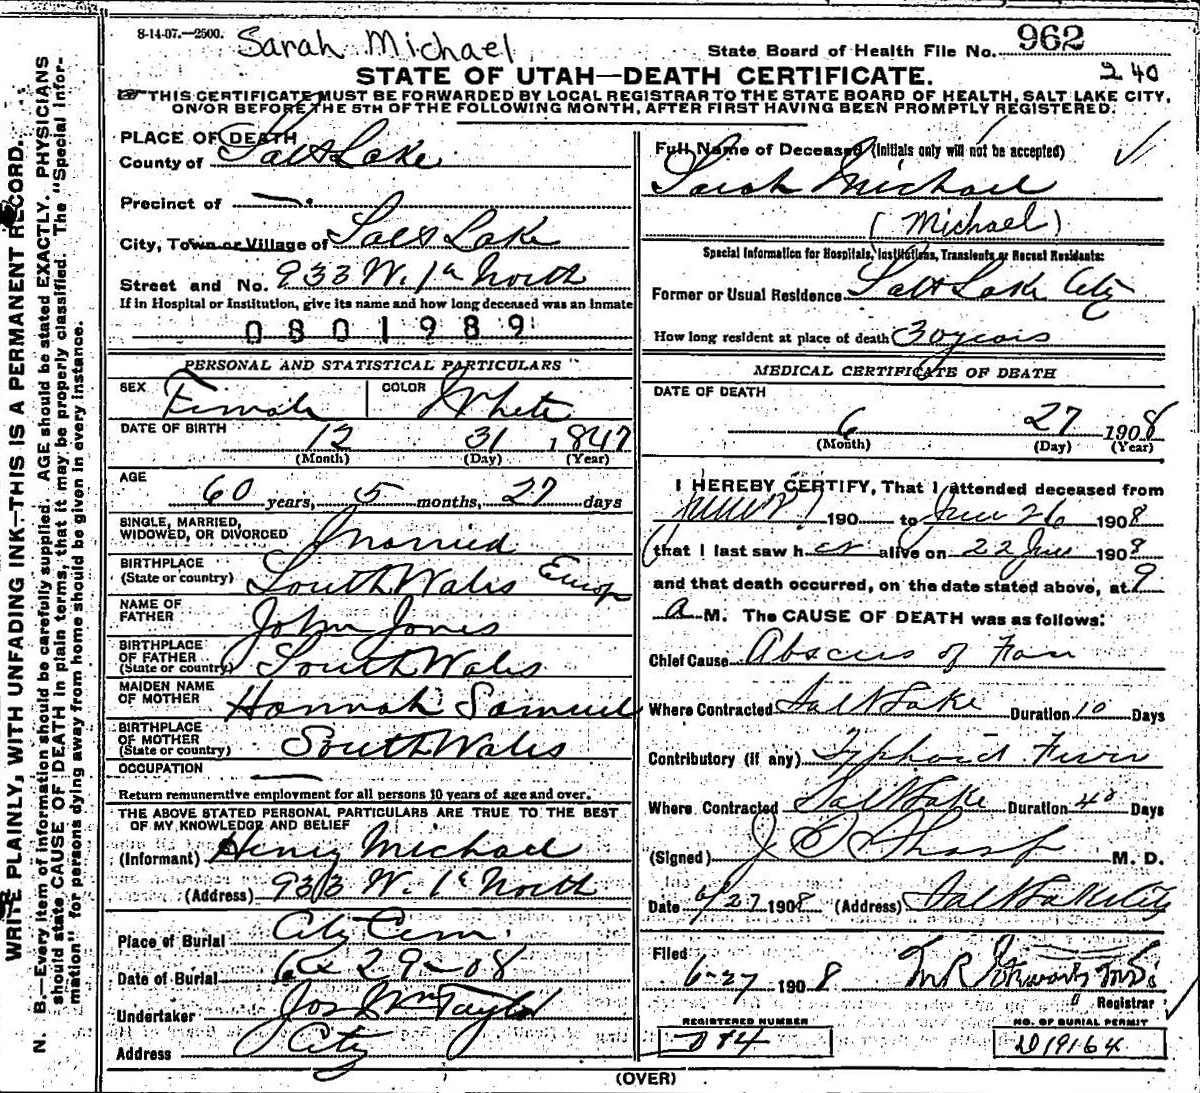 WRITE PLAINLY, WITH UNFADING INK—THIS IS A PERMANENT RECORD.
N. B.—Every item of information should be carefully supplied. AGE should be stated EXACTLY. PHYSICIANS
should state CAUSE OF DEATH in plain terms, that it may be properly classified. The "Special Infor-
mation" for persons dying away from home should be given in every instance.
8-14-07.—2500. Sarah Michael
State Board of Health File No. 962
240
STATE OF UTAH—DEATH CERTIFICATE.
THIS CERTIFICATE MUST BE FORWARDED BY LOCAL REGISTRAR TO THE STATE BOARD OF HEALTH, SALT LAKE CITY,
ON/OR BEFORE THE 5TH OF THE FOLLOWING MONTH, AFTER FIRST HAVING BEEN PROMPTLY REGISTERED.
PLACE OF DEATH
County of Salt Lake
Precinct of —
City, Town or Village of Salt Lake
Street and No. 933 W. 1st North
If in Hospital or Institution, give its name and how long deceased was an inmate
0801989
PERSONAL AND STATISTICAL PARTICULARS
SEX Female COLOR White
DATE OF BIRTH 12 31 1847
(Month) (Day) (Year)
AGE
60 years, 5 months, 27 days
SINGLE, MARRIED,
WIDOWED, OR DIVORCED Married
BIRTHPLACE
(State or country) South Wales Europ
NAME OF
FATHER John Jones
BIRTHPLACE
OF FATHER
(State or country) South Wales
MAIDEN NAME
OF MOTHER Hannah Samuel
BIRTHPLACE
OF MOTHER
(State or country) South Wales
OCCUPATION —
Return remunerative employment for all persons 10 years of age and over.
THE ABOVE STATED PERSONAL PARTICULARS ARE TRUE TO THE BEST
OF MY KNOWLEDGE AND BELIEF
(Informant) Henry Michael
(Address) 933 W. 1st North
Place of Burial City Cem.
Date of Burial 29-08
Undertaker Jos Wm Taylor
Address City
Full Name of Deceased (Initials only will not be accepted)
Sarah Michael
(Michael)
Special Information for Hospitals, Institutions, Transients or Recent Residents:
Former or Usual Residence Salt Lake City
How long resident at place of death 30 years
MEDICAL CERTIFICATE OF DEATH
DATE OF DEATH
6 27 1908
(Month) (Day) (Year)
I HEREBY CERTIFY, That I attended deceased from
190 to June 26 1908
that I last saw her alive on 22 June 1908
and that death occurred, on the date stated above, at 9
a M. The CAUSE OF DEATH was as follows:
Chief Cause Abscess of
Where Contracted Salt Lake Duration 10 Days
Contributory (if any) Typhoid Fever
Where Contracted Salt Lake Duration 40 Days
(Signed) Sharp M. D.
Date 6/27 1908 (Address) Salt Lake City
Filed
6-27 1908
Registrar
REGISTERED NUMBER
NO. OF BURIAL PERMIT
D19164
(OVER)